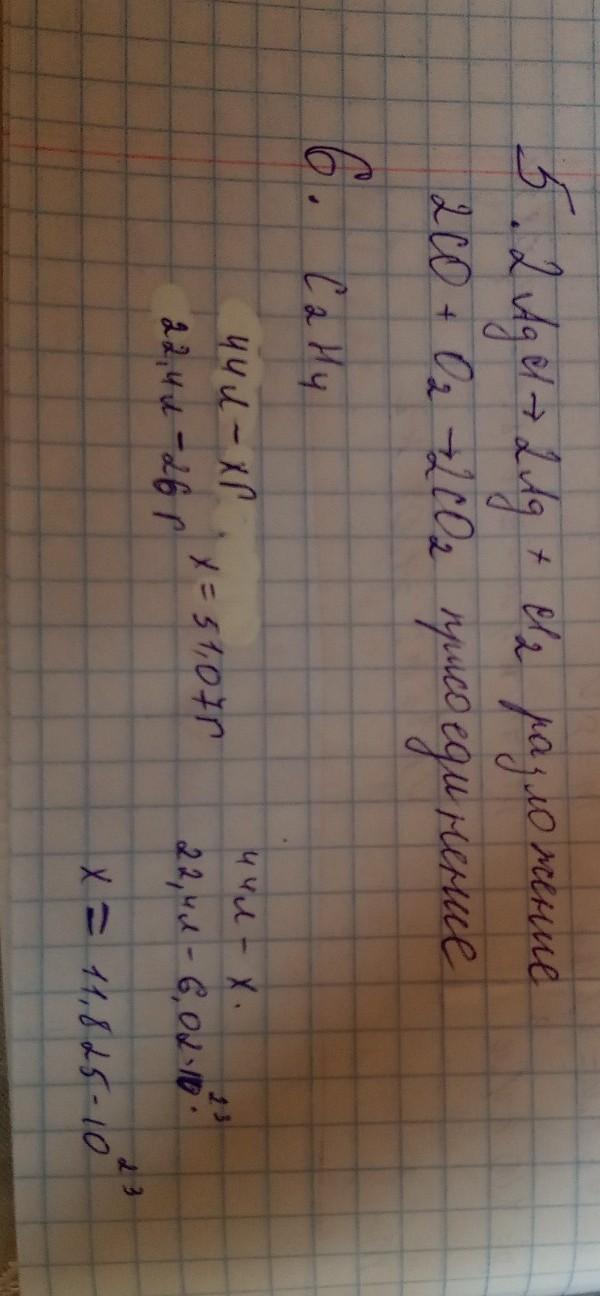 5. 2AgCl→2Ag + Cl₂ разложение
2CO + O₂→2CO₂ присоединение
6. C₂H₄
44л – xг.
22,4л – 26г
x = 51,07г
44л – x.
22,4л – 6,02·10²³.
x = 11,825·10²³